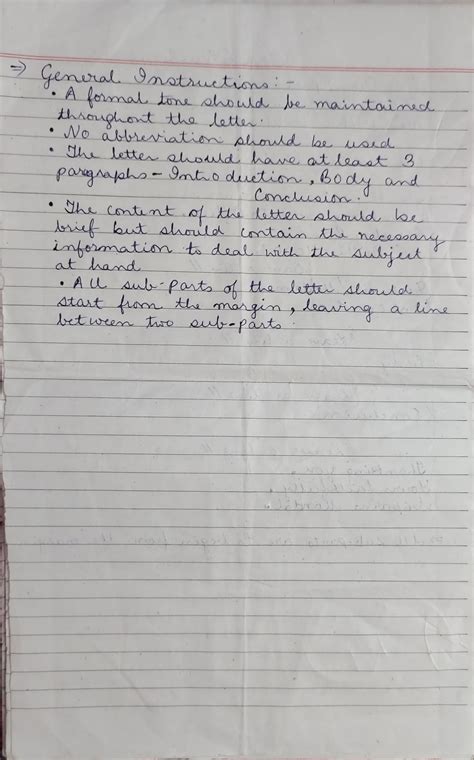 ⇒ General Instructions:-
• A formal tone should be maintained
throughout the letter.
• No abbreviation should be used
• The letter should have at least 3
paragraphs - Introduction, Body and
Conclusion.
• The content of the letter should be
brief but should contain the necessary
information to deal with the subject
at hand
• All sub-parts of the letter should
start from the margin, leaving a line
between two sub-parts.